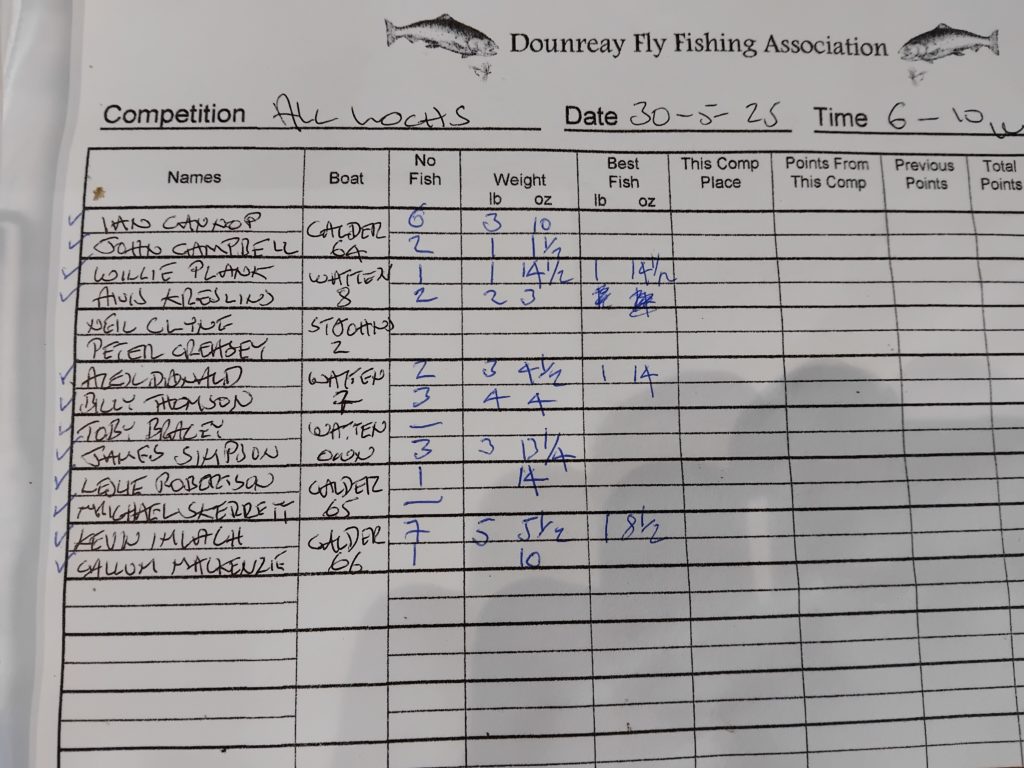 Dounreay Fly Fishing Association
Competition ALL LOCHS Date 30-5-25 Time 6-10
Names Boat No Fish Weight lb oz Best Fish lb oz This Comp Place Points From This Comp Previous Points Total Points
IAN CANNOP CALDER 6 3 10
JOHN CAMPBELL 64 2 1 1 1/2
WILLIE PLANK WATTEN 1 1 14 1/2 1 14 1/2
8 2 2 3
NEIL CLYNE
PETER 2
ALEX DONALD WATTEN 2 3 4 1/2 1 14
BILLY THOMSON 7 3 4 4
TOBY BRACEY WATTEN —
JAMES SIMPSON OWN 3 3 13 1/4
LESLIE ROBERTSON CALDER 1 14
MICHAEL SKERRETT 65 —
KEVIN IMLACH CALDER 7 5 5 1/2 1 8 1/2
CALLUM MACKENZIE 66 1 10